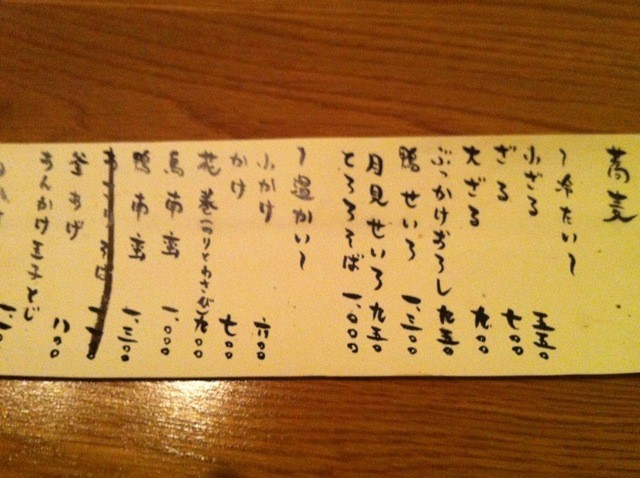 蕎麦
〜冷たい〜
小ざる 五五〇
ざる 七〇〇
大ざる 九〇〇
ぶっかけおろし 九五〇
鴨せいろ 一、三〇〇
月見せいろ 九五〇
とろろそば 一、〇〇〇
〜温かい〜
小かけ 六〇〇
かけ 七〇〇
花巻(のりとわさび) 九〇〇
鳥南蛮 一、〇〇〇
鴨南蛮 一、三〇〇
釜あげ 八〇〇
あんかけ玉子とじ